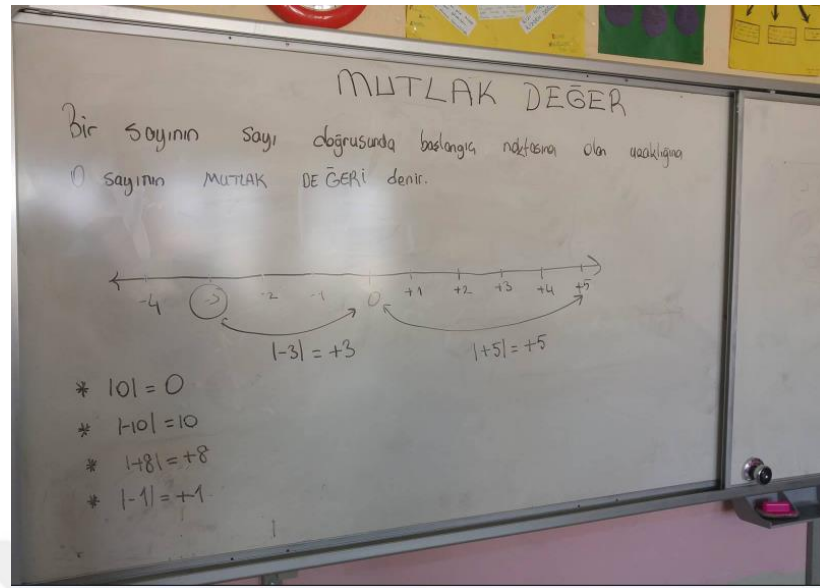 MUTLAK DEĞER
Bir sayının sayı doğrusunda başlangıç noktasına olan uzaklığına
O sayının MUTLAK DEĞERİ denir.
-4 -3 -2 -1 0 +1 +2 +3 +4 +5
|-3| = +3 |+5| = +5
* |0| = 0
* |-10| = 10
* |+8| = +8
* |-1| = +1